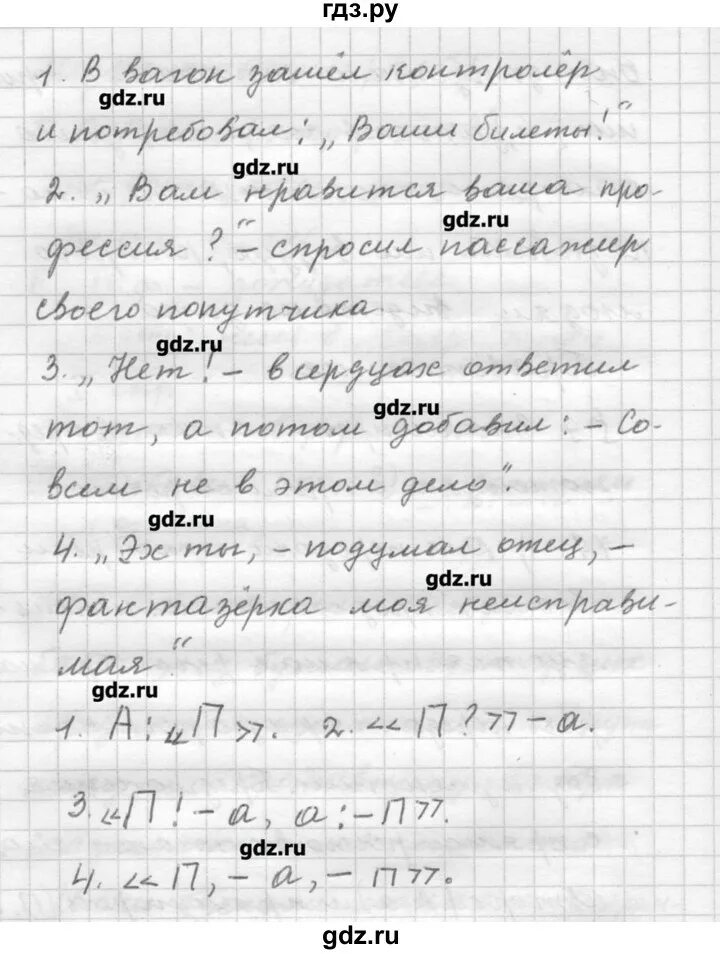 гдз.ру
1. В вагон зашёл контролёр
gdz.ru
и потребовал: „Ваши билеты!“
gdz.ru
2. „Вам нравится ваша про-
gdz.ru
фессия?“ – спросил пассажир
своего попутчика
gdz.ru
3. „Нет! – в сердцах ответил
gdz.ru
тот, а потом добавил: – Со-
всем не в этом дело“.
gdz.ru
4. „Эх ты, – подумал отец, –
gdz.ru
фантазёрка моя неисправи-
мая“.
gdz.ru
1. А: «П». 2. «П?» – а.
3. «П! – а, а: – П».
gdz.ru
4. «П, – а, – п».
gdz.ru